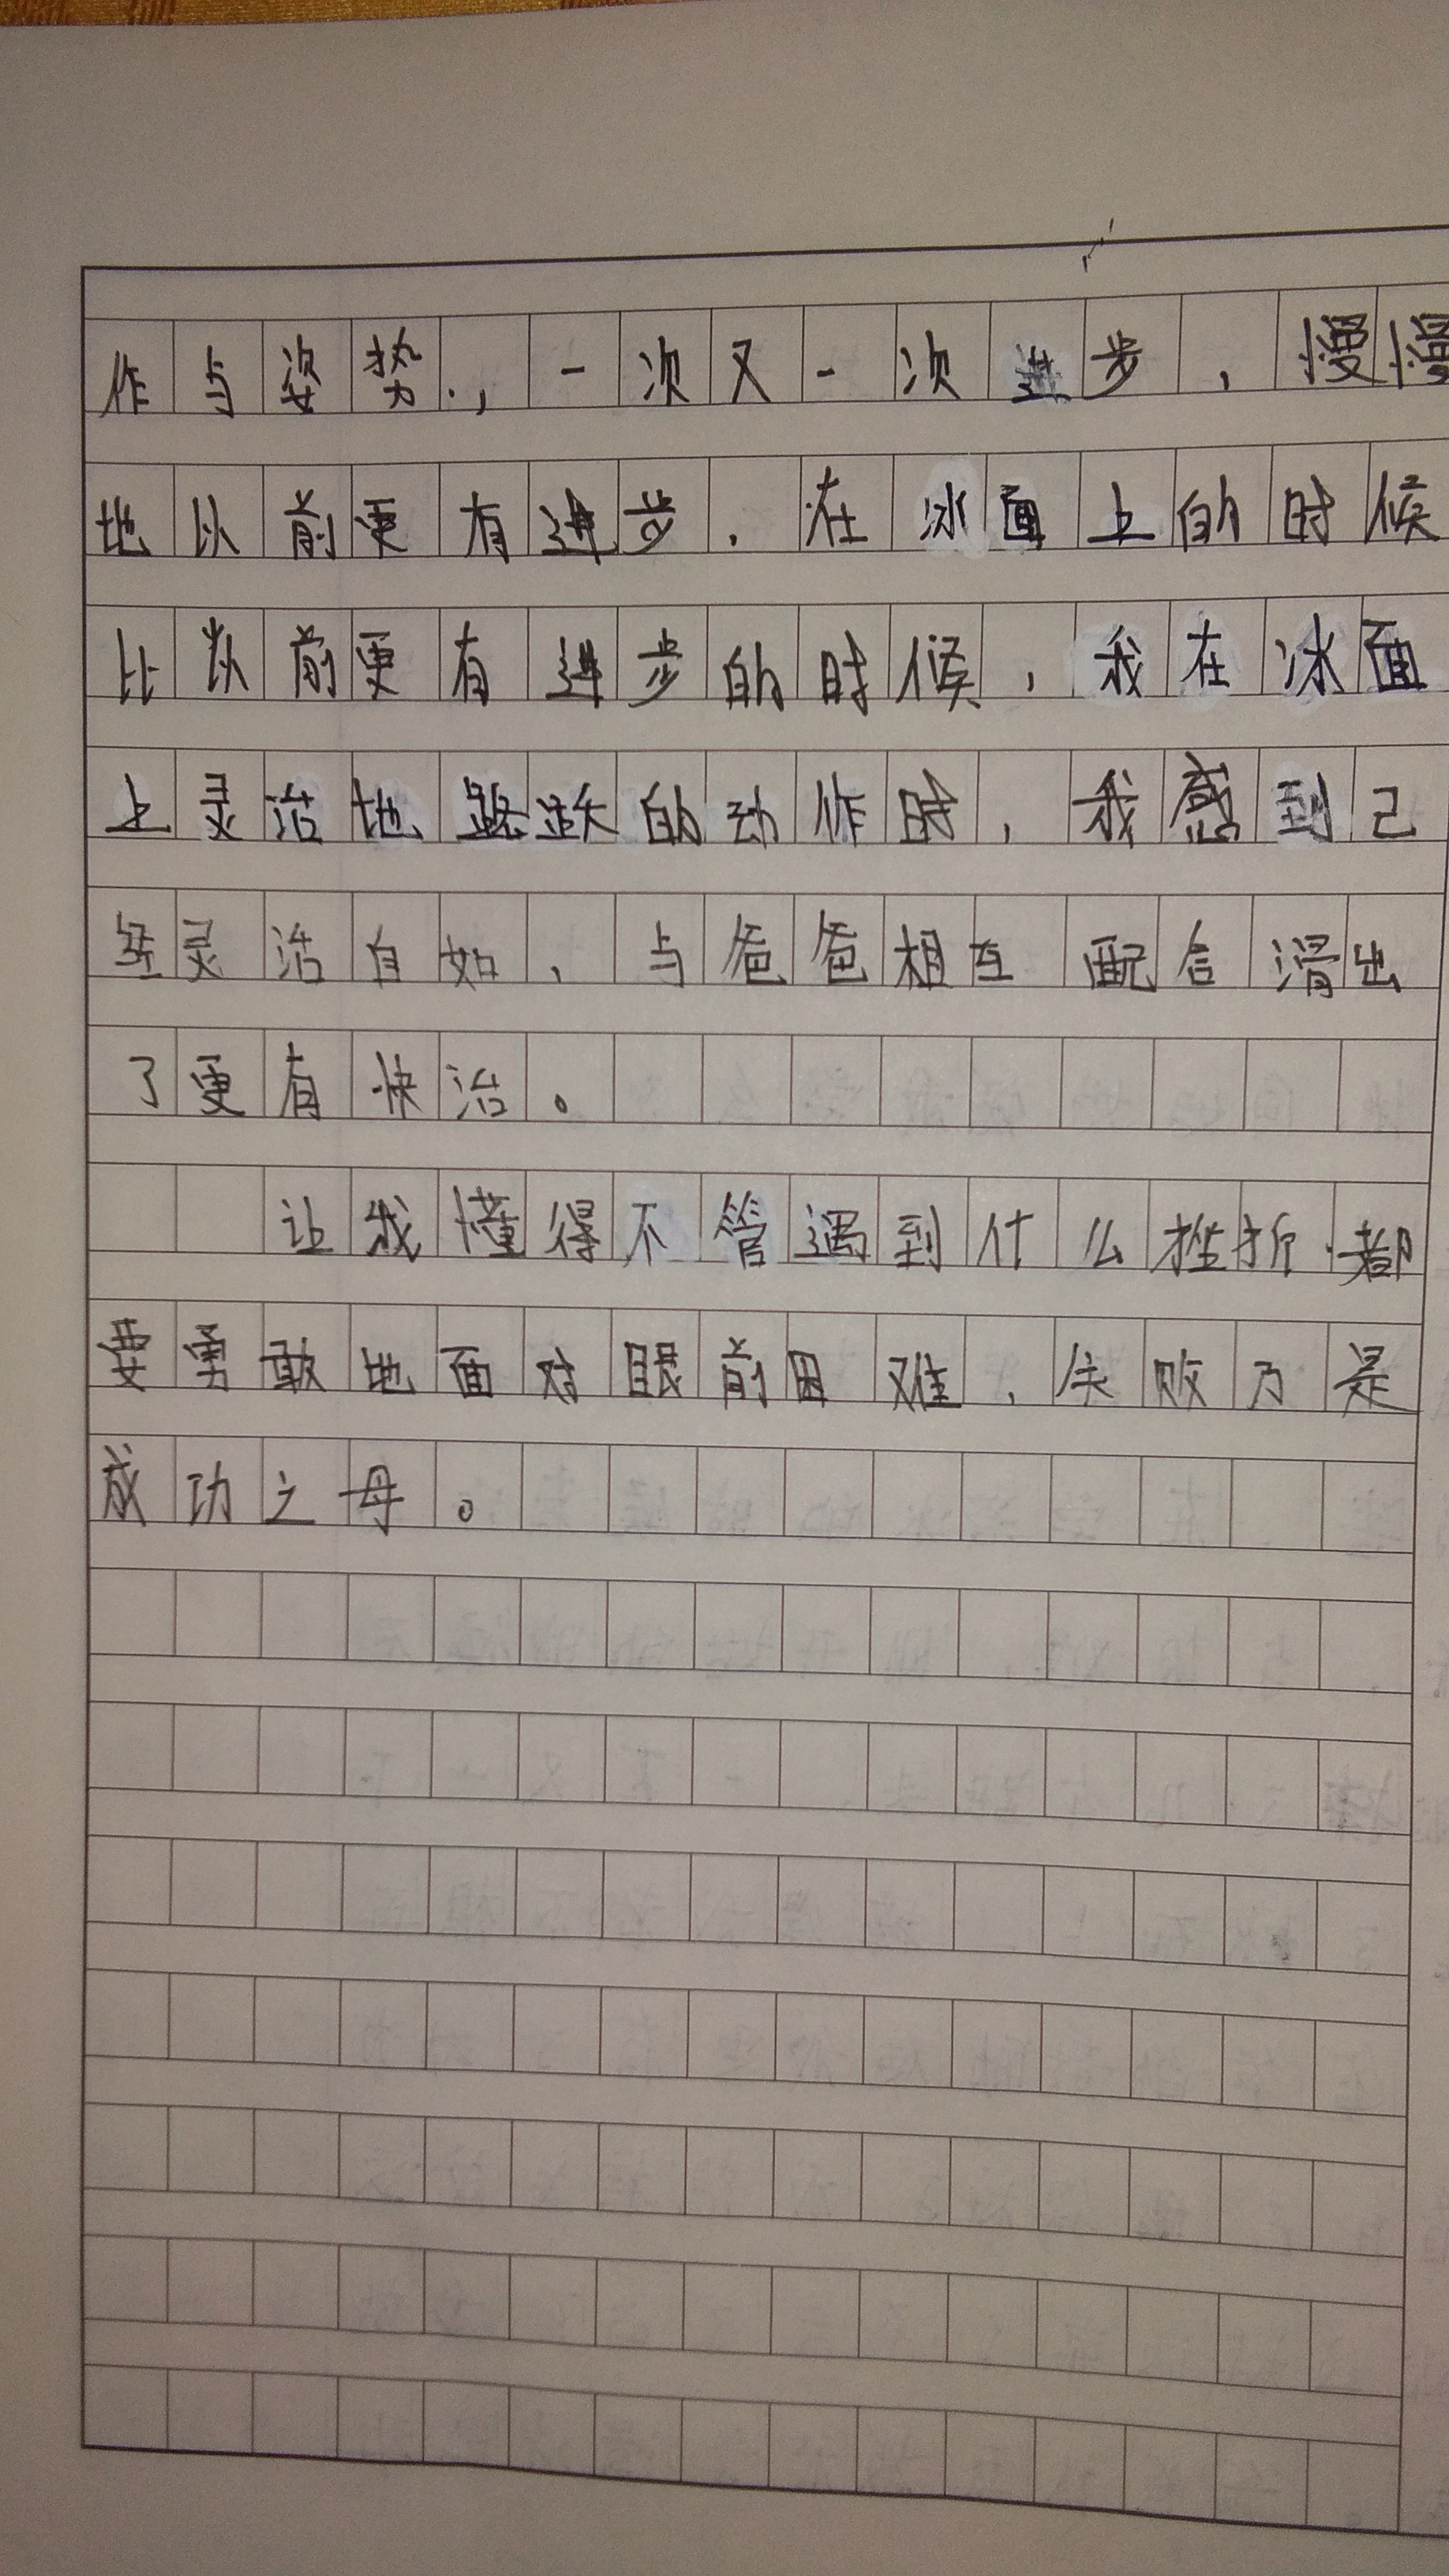 作与姿势.，一次又一次进步，慢慢
地以前更有进步．在冰面上的时候
比以前更有进步的时候，我在冰面
上灵活地跳跃的动作时，我感到己
经灵活自如，与爸爸相互配合滑出
了更有快治。
让我懂得不管遇到什么挫折.都
要勇敢地面对眼前困难，失败乃是
成功之母。